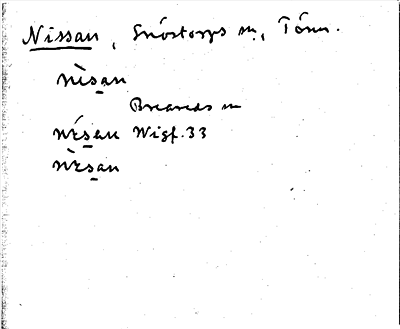 Nissan, Snöstorps sn, Tönn.
nìsan
Breareds sn
nísan Wigf. 33
nìsan